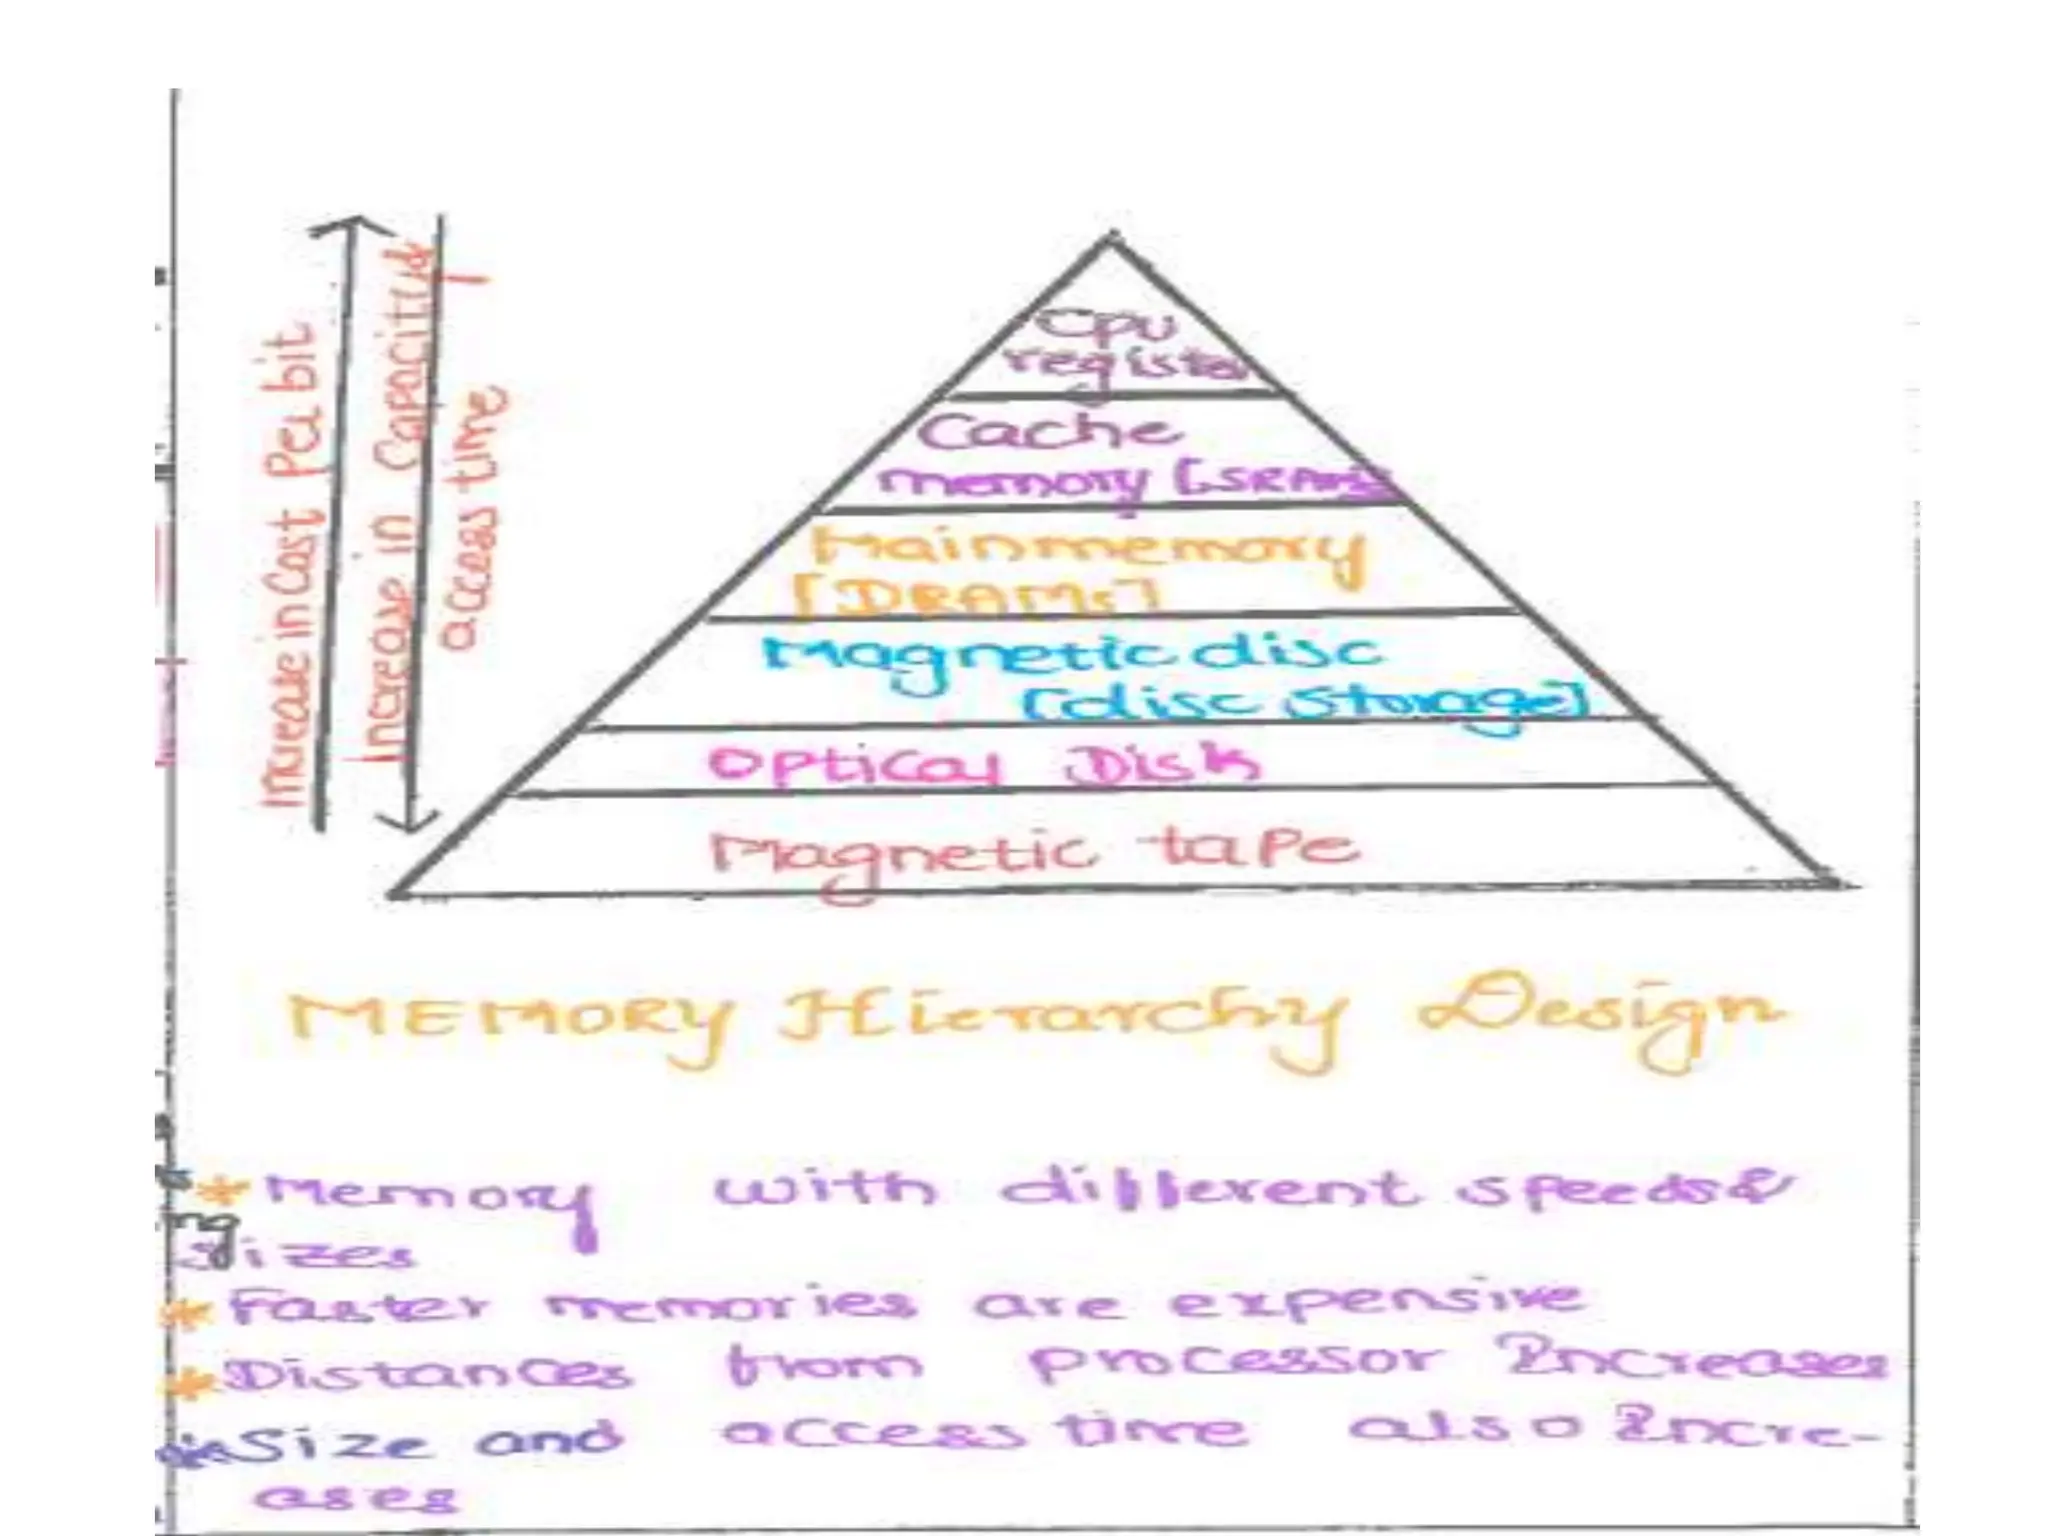 Increase in Cost Per bit
Increase in Capacity &
access time
Cpu
register
Cache
memory [SRAMs]
Main memory
[DRAMs]
Magnetic disc
[disc storage]
Optical Disk
Magnetic tape
MEMORY Hierarchy Design
* Memory with different speeds &
ng
sizes
* Faster memories are expensive
* Distances from processor Increases
Size and access time also Incre-
ases